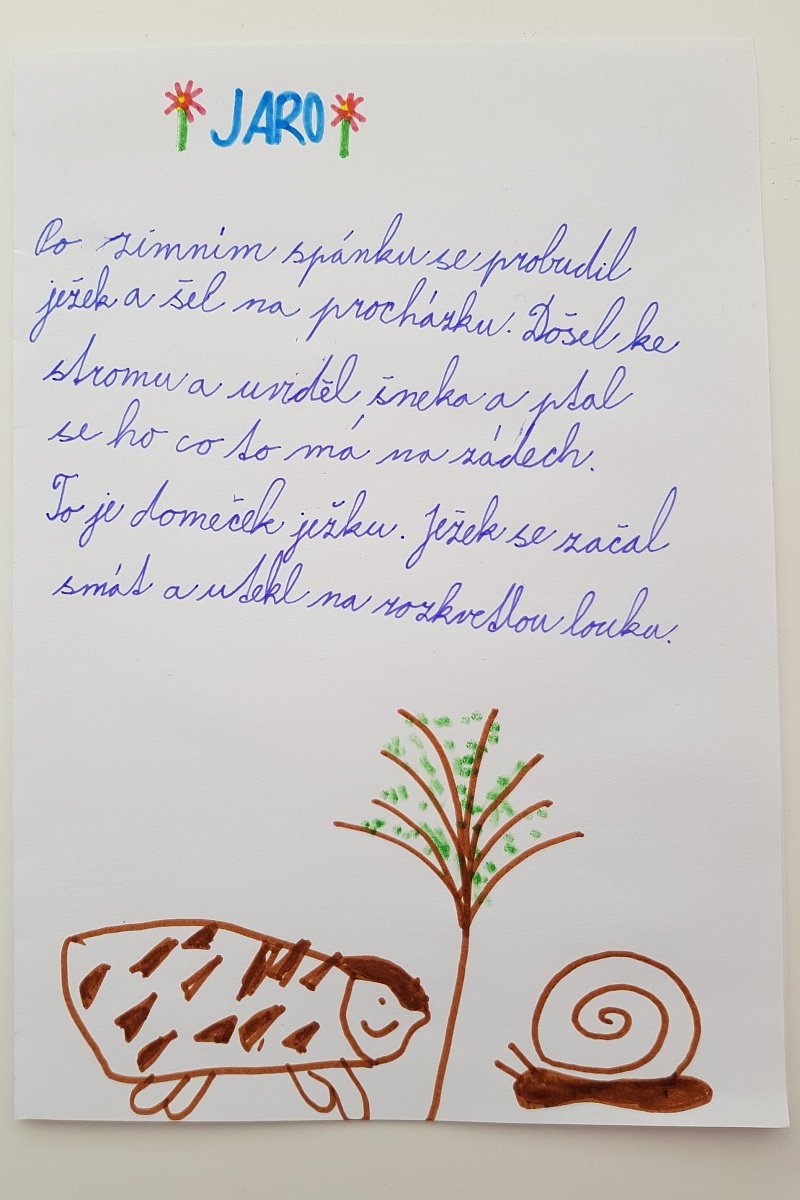 JARO
Po zimním spánku se probudil
ježek a šel na procházku. Došel ke
stromu a uviděl šneka a ptal
se ho co to má na zádech.
To je domeček ježku. Ježek se začal
smát a utekl na rozkvetlou louku.